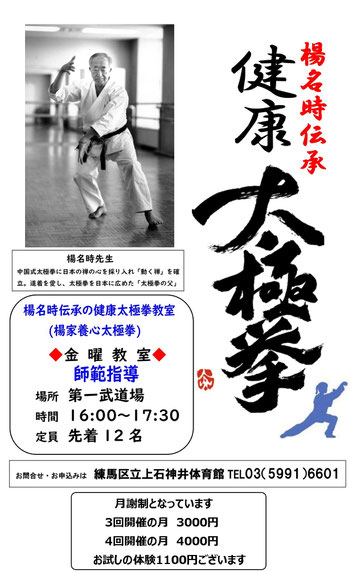 楊名時伝承
健康
太極拳
楊名時先生
中国式太極拳に日本の禅の心を採り入れ「動く禅」を確
立。道着を愛し、太極拳を日本に広めた「太極拳の父」
楊名時伝承の健康太極拳教室
(楊家養心太極拳)
◆金曜教室◆
師範指導
場所 第一武道場
時間 16:00～17:30
定員 先着12名
お問合せ・お申込みは 練馬区立上石神井体育館 TEL03(5991)6601
月謝制となっています
3回開催の月 3000円
4回開催の月 4000円
お試しの体験1100円ございます